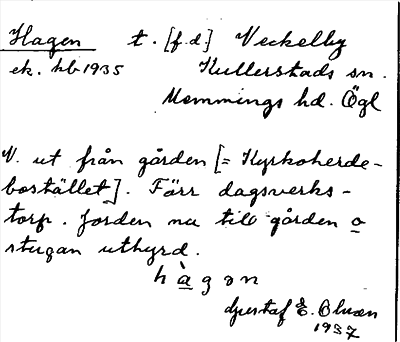 Hagen t. [f.d.] Veckelby
ek. kb 1935 Kullerstads sn.
Memmings hd. Ögl
V. ut från gården [= Kyrkoherde-
bostället]. Förr dagsverks-
torp. Jorden nu till gården o
stugan uthyrd.
hàgan
Gustaf E. Olsson
1937